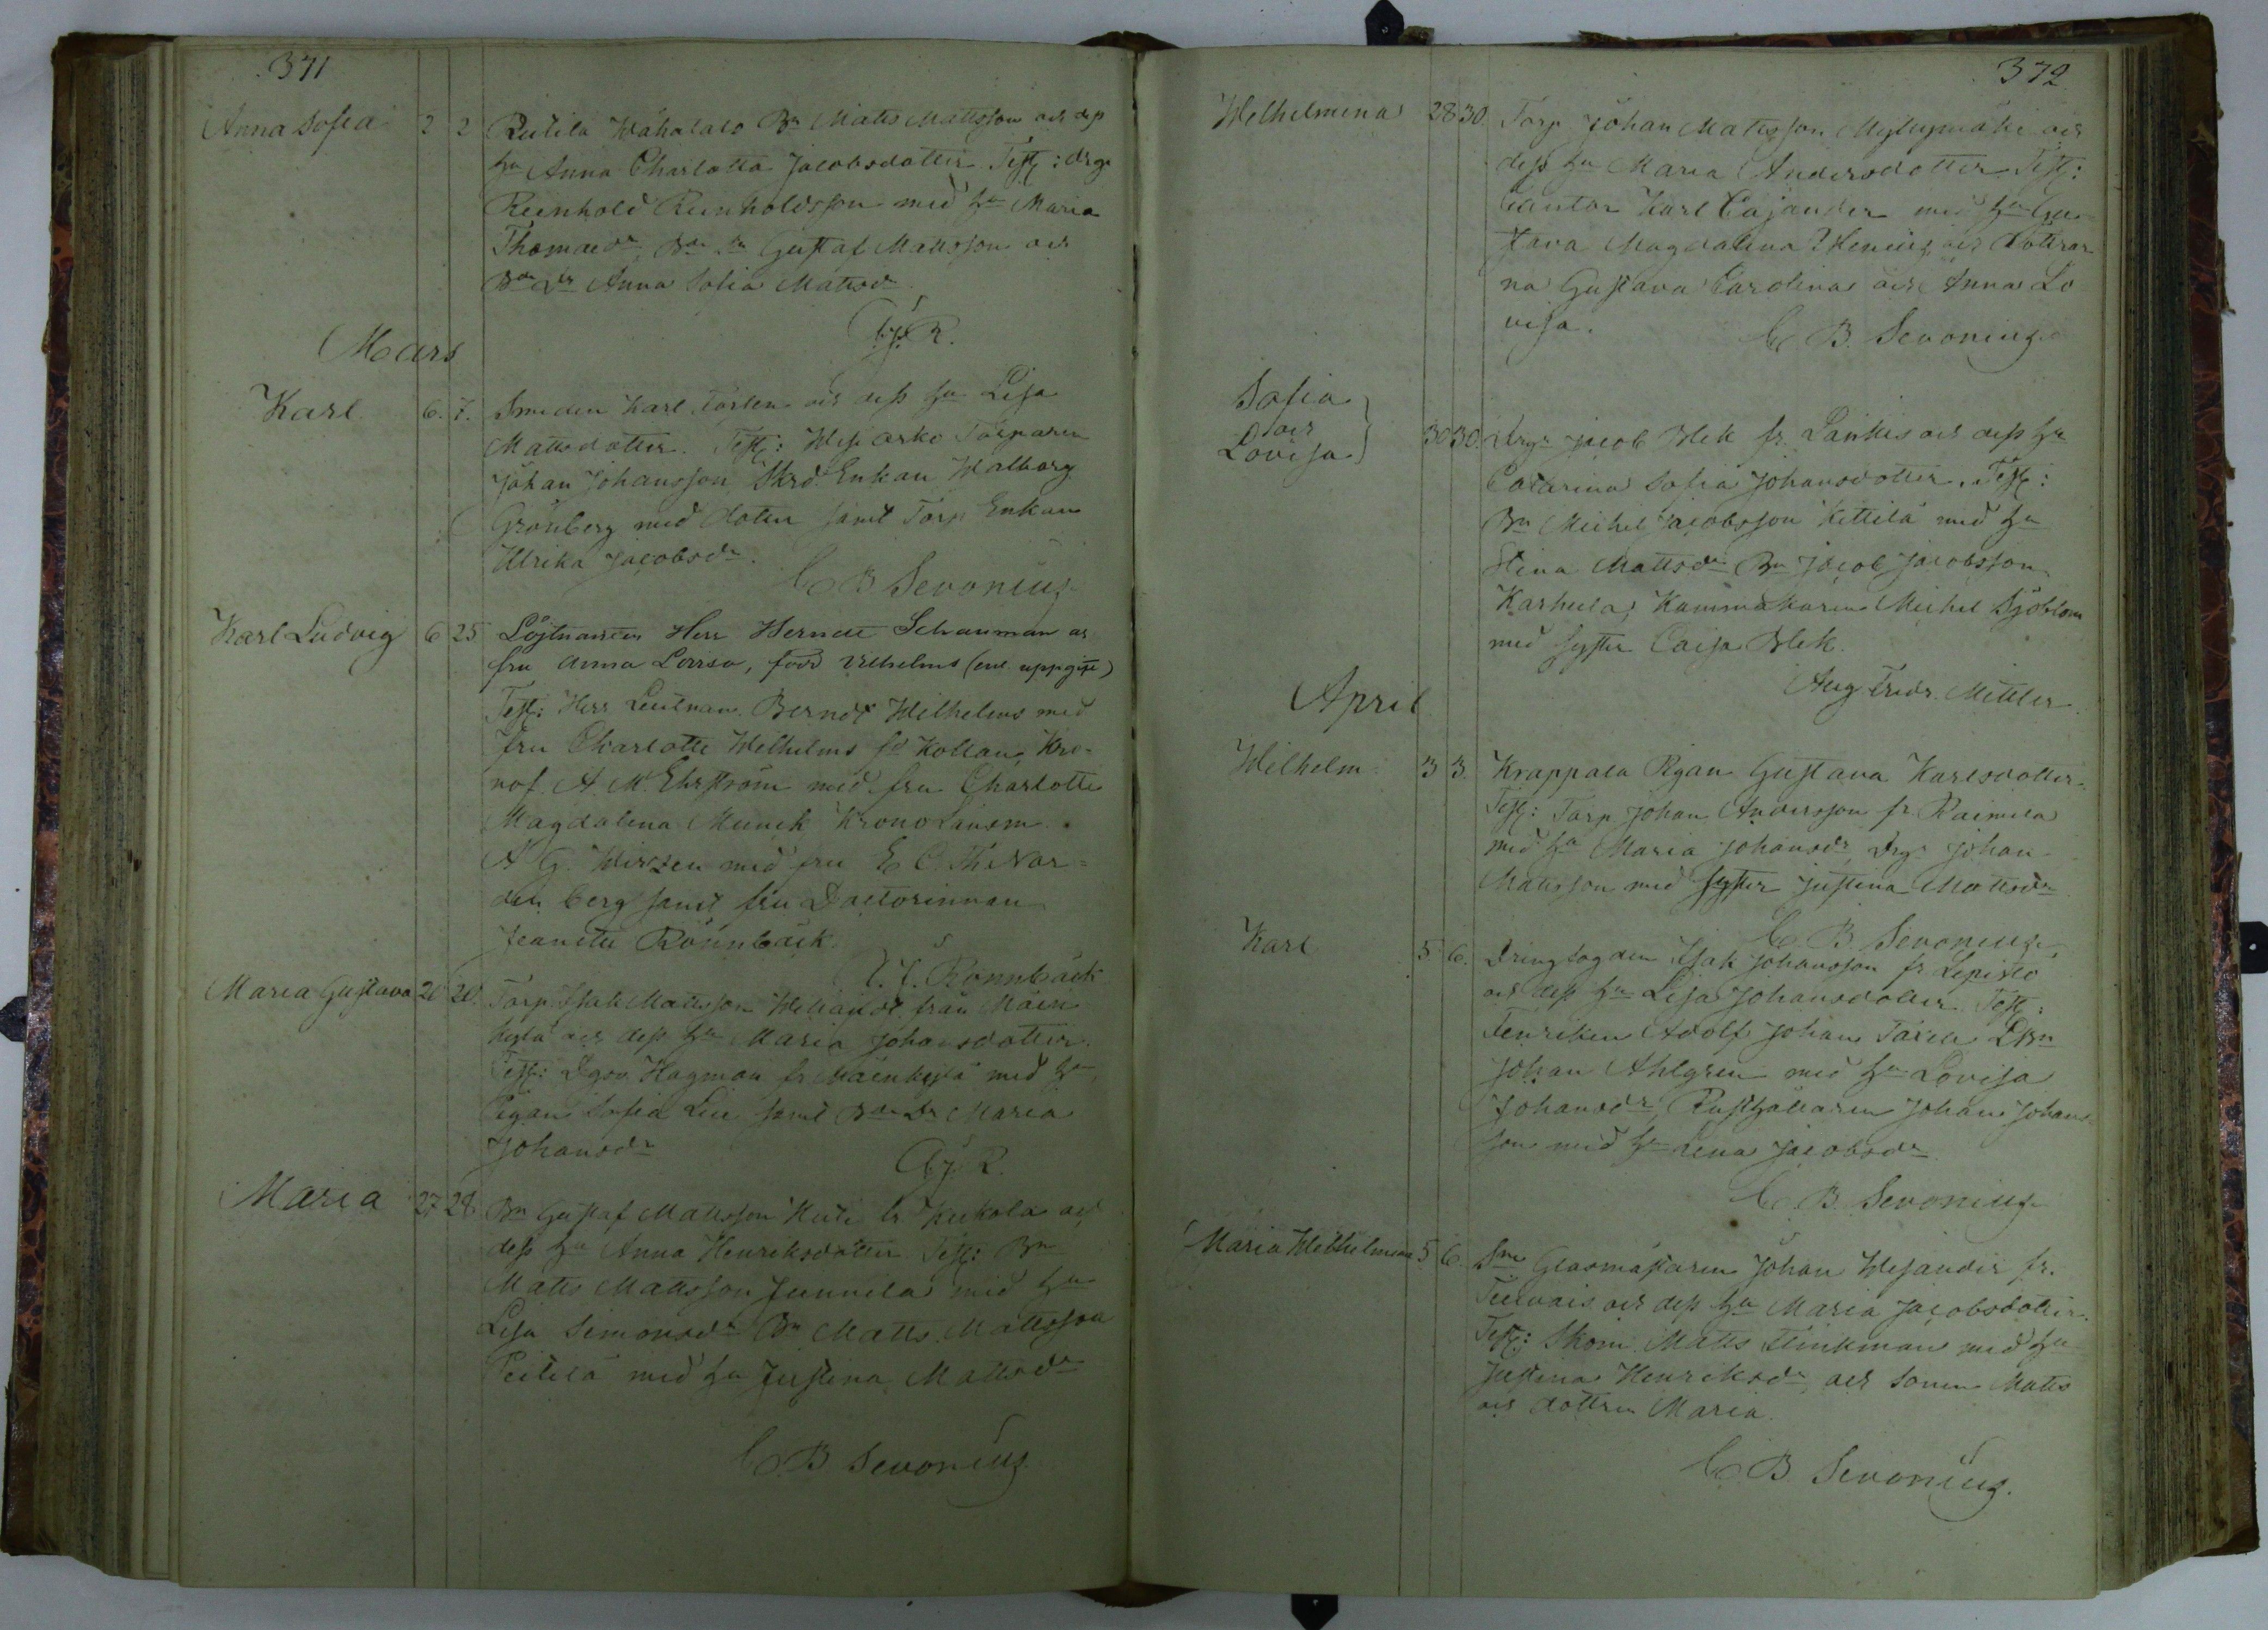 371
Anna Sofia 2 2 Rutila Wähatalo Bn Matts Mattsson och dess
hu Anna Charlotta Jacobsdotter Test: drg
Reinhold Reinholdsson med hu Maria
Thomasdr, Bde sn Gustaf Mattsson och
Bde dr Anna Sofia Mattsdr
Mars
Karl 6. 7. Smeden Karl Forsten och dess hu Lisa
Mattsdotter. Test: Torparen
Johan Johansson, Skrd. Enkan Walborg
Grönberg med dotter samt Torp Enkan
Ulrika Jacobsdr.
C B Sevonius
Karl Ludvig 6 25 Löjtnanten Herr Schauman och
fru Anna Lovisa, född Vilhelms (enl. uppgift)
Test: Herr Leutnan. Berndt Wilhelms med
fru Charlotte Wilhelms fr Kollan, Kro-
nof. A. M. Ehrström med fru Charlotte
Magdalena Munck Kronolänsm.
A G. Wirzen med fru E C. Th Nor-
denberg samt fru Doctorinnan
Jeanette Rönnbäck.
Rönnbäck
Maria Gustava 20 20. Torp Isak Mattsson från Mäen
kylä och dess hu Maria Johansdotter.
Test: Hagman fr Mäenkylä med hu,
Pigan Sofia samt Bde Dr Maria
Johansdr
Maria 27 28. Bn Gustaf Mattsson fr Kuhola och
dess hu Anna Henriksdotter Test: Bn
Matts Mattsson Junnila med hu
Lisa Simonsdr Bn Matts Mattsson
med hu Justina Mattsdr
C. B. Sevonius
372
Wilhelmina 28 30. Torp Johan Mattsson Myllymäki och
dess hu Maria Andersdotter Test:
Cantor Karl Cajander med hu Gu-
stava Magdalena och dottrar-
na Gustava Carolina och Anna Lo
visa.
C B. Sevonius
Sofia
och
Lovisa
30 30. Drgn Jacob Blek fr. Länkis och dess hu
Catarina Sofia Johansdotter. Test:
Bn Michel Jacobsson Kettilä med hu
Stina Mattsdr Bn Jacob Jacobsson
Karhula, Kammakaren Michel Sjöblom
med syster Caisa Blek.
Aug. Fredr. Mittler
April
Wilhelm 3 3. Krappala Pigan Gustava Karlsdotter.
Test: Torp Johan Andersson fr Raimela
med hu Maria Johansdr, Drg Johan
Mattsson med syster Justina Mattsdr
C. B. Sevonius
Karl 5 6. Isak Johansson fr Lepistö
och dess hu Lisa Johansdotter Test:
Fenriken Adolf Johan
Johan Ahlgren med hu Lovisa
Johansdr, Rusthållaren Johan Johans-
son med hu Lena Jacobsdr
C B. Sevonius
Maria Wilhelmina 5 6 Glasmästaren Johan Wesander fr.
och dess hu Maria Jacobsdotter.
Test: Skom. Matts Flinkman med hu
Justina Henriksdr, och sonen Matts
och dottren Maria.
C B Sevonius.